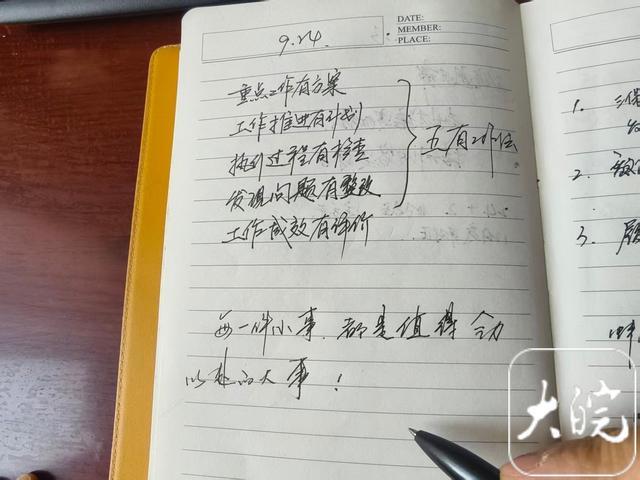 9.24.
DATE:
MEMBER:
PLACE:
重点工作有方案
工作推进有计划
执行过程有检查
发现问题有整改
工作成效有评价
五有工作法
每一件小事,都是值得全力
以赴的大事!
1.
2.
3.
大皖